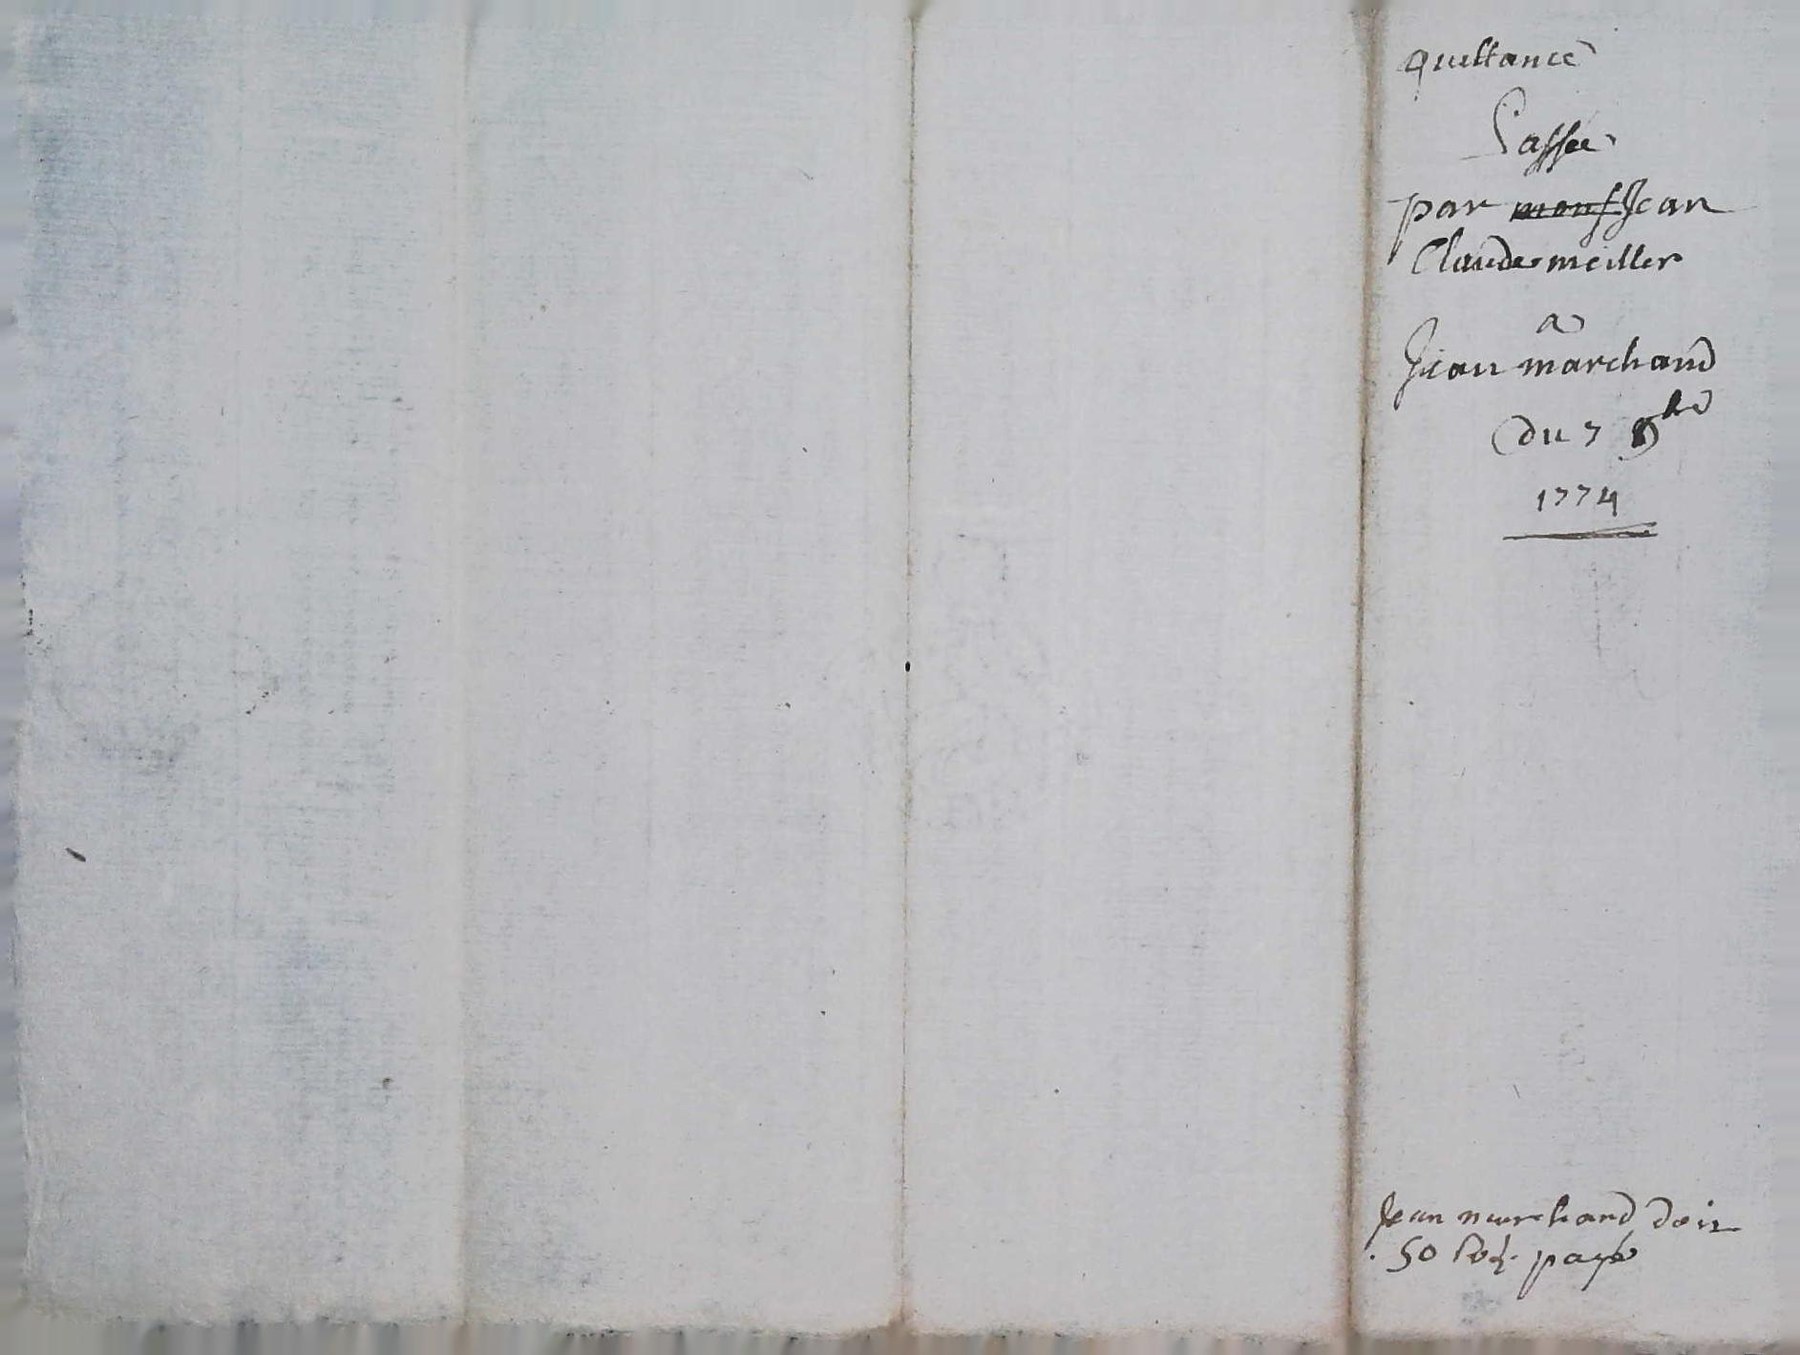 quittance
Passée
par Jean
Claude meiller
a
Jean marchand
du 7 9bre
1774
Jean marchand doit
50 sols payé